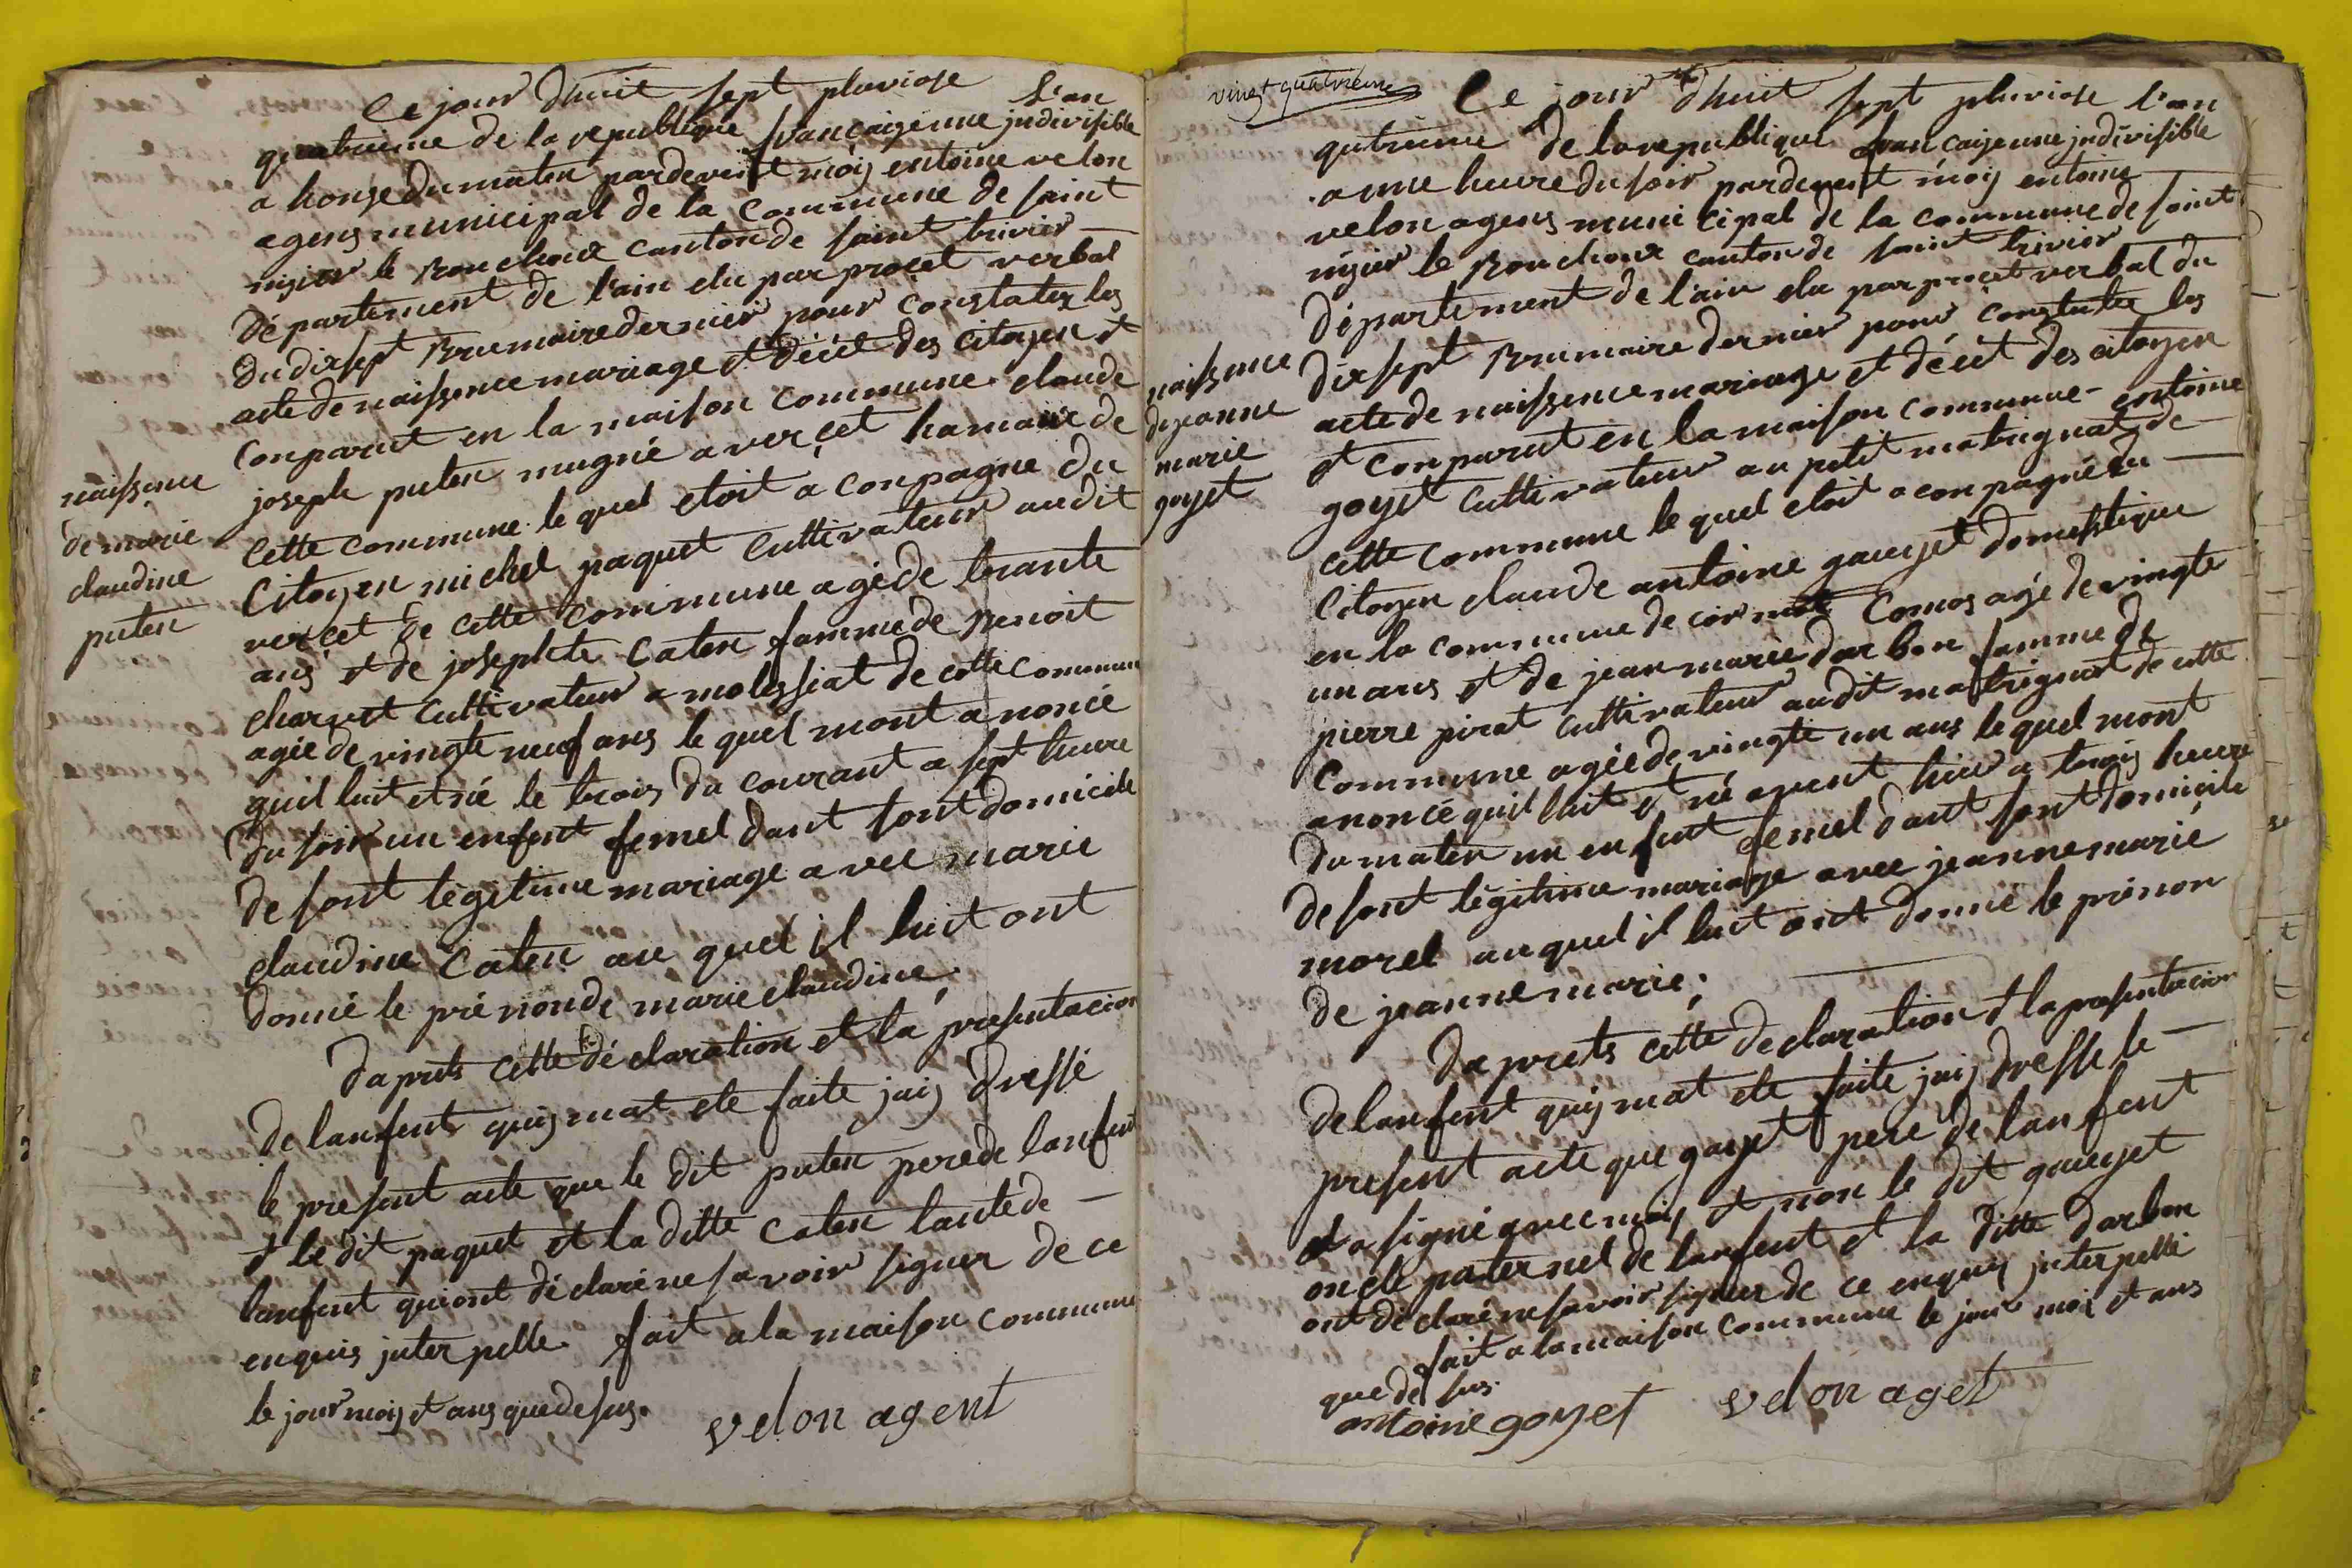 Ce jour dhuit sept pluviose l'an
quatrieme de la republique francaize une jndivisible
a honze du maten pardevent moij entoine velon
agens municipal de la commune de saint
nizier le Bouchoux canton de saint trivier
département de l'ain elu par procet verbal
du dixsept Brumaire dernier pour constater les
acte de naissence mariage et décét des citoyen et
conparut en la maison commune claude
joseph puten mugnié a verçet hamaux de
cette commune le quel etoit a conpagne du
Citoyen michel paquet cultivateur audit
verçet de cette commune agéde trante
ans et de josephte Caten famme de Benoit
charvet cultivateur a molessiat de cette commune
agée de vingte neuf ans le quel mont anoncé
quil luit et né le trois du courant a sept heure
du soir un enfent femel dant sont domicile
de sont legitime mariage avec marie
claudine Caten au quel il luit ont
donné le prénon de marie claudine,
naissence
de marie
claudine
puten
daprets cette déclaration et la presentacion
de lanfent quij mat ete faite jaij dressé
le present acte que le dit puten pere de lanfent
et le dit paquet et la ditte Caten tante de
lanfent qui ont déclaré ne savoir signer de ce
enquis jnterpelle fait a la maison commune
le jour mois et ans que de sus.
velon agent
vingt quatrieme
Ce jour dhuit sept pluviose l'an
qutrieme de la republique francaize une jndivisible
a une heure du soir pardevent moij entoine
velon agens municipal de la commune de saint
nizier le Bouchoux canton de saint trivier
département de l'ain elu par procet verbal du
dixsept Brumaire dernier pour constater les
acte de naissence mariage et décét des citoyen
et conparut en la maison commune entoine
goyet cultivateur au petit matrignat de
cette commune le quel etoit a conpagné du
Citoyen claude antoine gauyet domestique
en la commune de cormos agé de vingte
un ans et de jean marie darbon famme de
pierre pirat cultivateur audit matrignat de cette
commune agée de vingte un ans le quel mont
anoncé quil luit et né avent hier a trois heure
du maten un enfent femel dant sont domicile
de sont légitime mariage avec jeanne marie
morel au quel il luit ont donné le prénon
de jeanne marie;
naissence
de jeanne
marie
goyet
daprets cette declaration et la presentacion
de lanfent quij mat ete faite jaij dresse le
present acte que goyet pere de lanfent
et a signé avec moij et non le dit gauyet
oncle paternel de lanfent et la ditte darbon
ont déclaré ne savoir signer de ce enquij jnterpellé
fait a la maison commune le jour mois et ans
que de sus.
antoine goyet velon aget